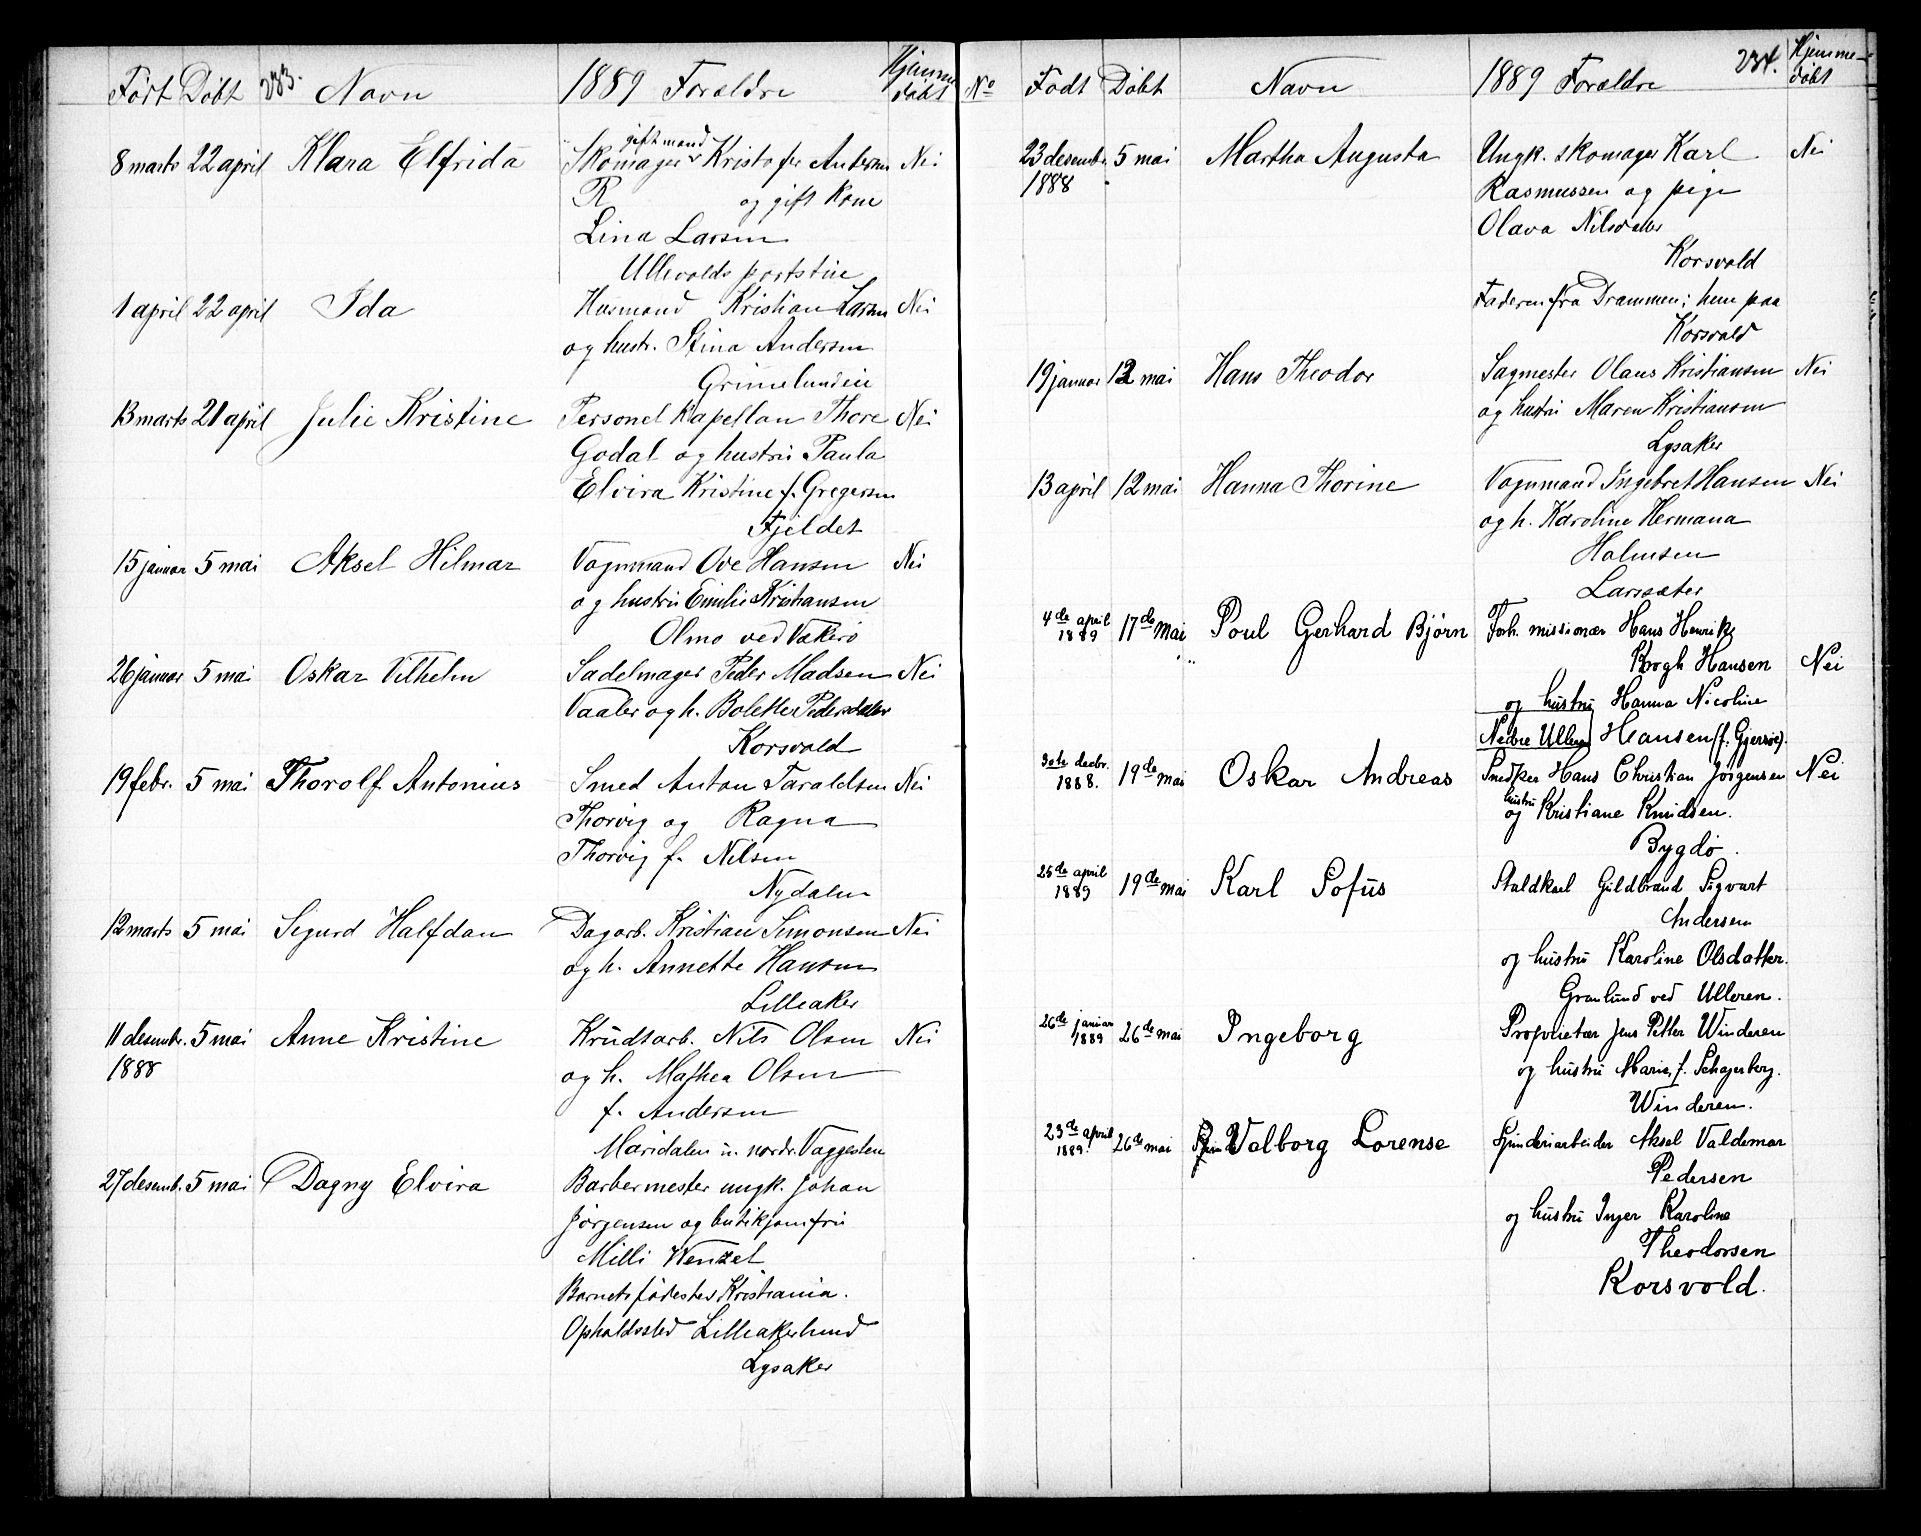 Født Døbt 233. Navn 1889 Forældre Hjemme
døbt
gift mand
8 marts 22 april Klara Elfrida Skomager Kristofer Andersen Nei
R og gift kone
Lina Larsen
Ullevolds portstue
1 april 22 april Ida Husmand Kristian Larsen Nei
og hustr. Stina Andersen
Grimelundeie
13 marts 21 april Julie Kristine Personel Kapellan Thore Nei
Godal og hustru Paula
Elvira Kristine f. Gregersen
Fjeldet
15 januar 5 mai Aksel Hilmar Vognmand Ove Hansen Nei
og hustru Emilie Kristiansen
Olmo ved Vækerø
26 januar 5 mai Oskar Vilhelm Sadelmager Peder Madsen Nei
Vaaler og h. Bolette Pedersdatter
Korsvold
19 febr. 5 mai Thorolf Antonius Smed Anton Taraldsen Nei
Thorvig og Ragna
Thorvig f. Nilsen
Nydalen
12 marts 5 mai Sigurd Halfdan Dagarb. Kristian Simonsen Nei
og h. Annette Hansen
Lilleaker
11 desembr. 5 mai Anne Kristine Krudtarb. Nils Olsen Nei
1888 og h. Mathea Olsen
f. Andersen
Maridalen u. nordr. Vaggesten
27 desemb. 5 mai Dagny Elvira Barbermester ungk. Johan
Jørgensen og butikjomfru
Milli Wenzel
Barnets fødested Kristiania.
Opholdssted Lilleakerlund
Lysaker
No Født Døbt Navn 1889 Forældre 234. Hjemme-
døbt
23 desembr. 5 mai Martha Augusta Ungk. skomager Karl Nei
1888 Rasmussen og pige
Olava Nilsdatter
Korsvold
Faderen fra Drammen; hun paa
Korsvold
19 januar 12 mai Hans Theodor Sagmester Olaus Kristiansen Nei
og hustru Maren Kristiansen
Lysaker
13 april 12 mai Hanna Thorine Vognmand Ingebret Hansen Nei
og h. Karoline Hermana
Halmsen
Larssæter
4de april 1889 17de mai Poul Gerhard Bjørn Forh. missionær Hans Henrik
Krogh Hansen Nei
og hustru Hanna Nicoline
Nedre Ullern Hansen (f. Gjersøe).
30te decbr. 1888. 19de mai Oskar Andreas Snedker Hans Christian Jørgensen Nei
og hustru Kristiane Knudsen.
Bygdø.
25de april 1889 19de mai Karl Sofus Staldkarl Guldbrand Sigvart
Andersen
og hustru Karoline Olsdatter.
Granlund ved Ulleren.
26de januar 1889 26de mai Ingeborg Proprietær Jens Petter Winderen
og hustru Marie, f. Schajerberg.
Winderen.
23de april 1889. 26de mai Valborg Lorense Spinderiarbeider Aksel Valdemar
Pedersen
og hustru Inger Karoline
Theodorsen
Korsvold.